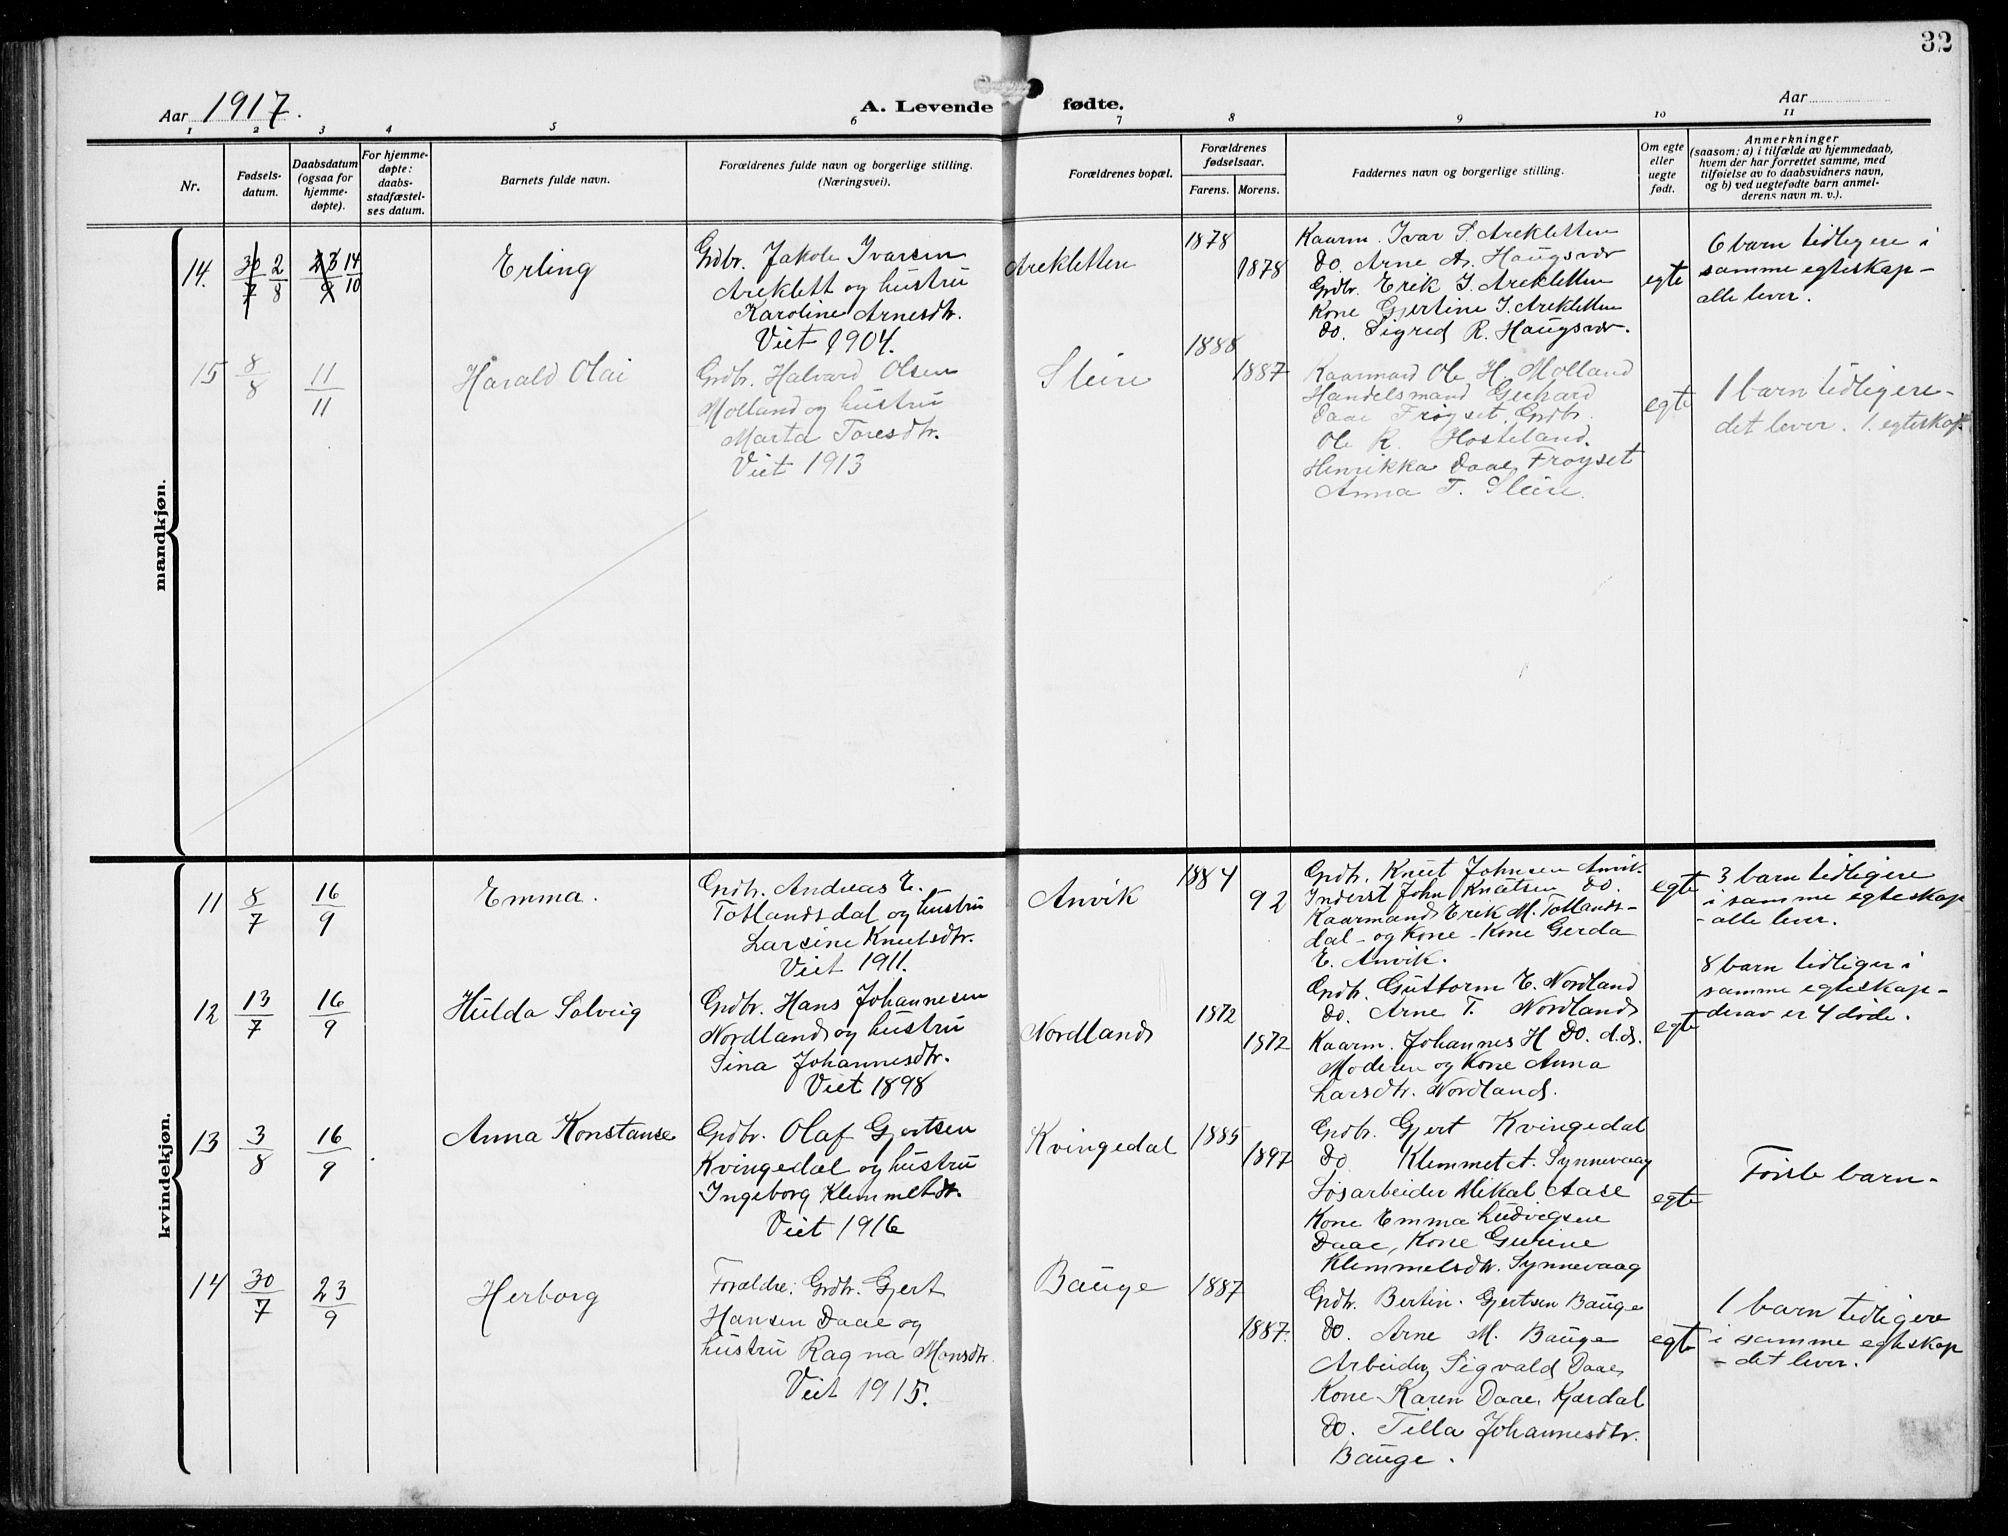 32
Aar 1917.
A. Levende fødte.
Aar
1 2 3 4 5 6 7 8 9 10 11
Nr.
Fødsels-
datum.
Daabsdatum
(ogsaa for
hjemme-
døpte).
For hjemme-
døpte:
daabs-
stadfæstel-
ses datum.
Barnets fulde navn.
Forældrenes fulde navn og borgerlige stilling.
(Næringsvei).
Forældrenes bopæl.
Forældrenes
fødselsaar.
Farens. Morens.
Faddernes navn og borgerlige stilling.
Om egte
eller
uegte
født.
Anmerkninger
(saasom: a) i tilfælde av hjemmedaab,
hvem der har forrettet samme, med
tilføielse av to daabsvidners navn,
og b) ved uegtefødte barn anmel-
derens navn m. v.).
mandkjøn.
14. 30/7 2/8 23/9 14/10
Erling
Grdbr. Jakob Ivarsen
Areklett og hustru
Karoline Arnesdtr.
Viet 1904.
Arekletten
1878
1878
Kaarm. Ivar S. Arekletten
do. Arne A. Haugsvær
Grdbr. Erik J. Arekletten
Kone Gjertine J. Arekletten
do. Sigred R. Haugsvær.
egte
6 barn tidligere i
samme egteskap -
alle lever.
15 8/8 11/11
Harald Olai
Grdbr. Halvard Olsen
Molland og hustru
Marta Toresdtr.
Viet 1913
Steire
1888
1887
Kaarmand Ole H. Molland
Handelsmand Gerhard
Daae Frøyset, Grdbr.
Ole R. Hosteland.
Henrikka Daae Frøyset
Anna T. Steire.
egte
1 barn tidligere -
det lever. 1. egteskap.
kvindekjøn.
11 8/7 16/9
Emma.
Grdbr. Andreas E.
Totlandsdal og hustru
Larsine Knutsdtr.
Viet 1911.
Anvik
1884
92
Grdbr. Knut Johnsen Anvik.
Inderst John Knutsen do.
Kaarmand Erik M. Totlands-
dal - og Kone - Kone Gerda
E. Anvik.
egte
3 barn tidligere
i samme egteskap
- alle lever.
12 13/7 16/9
Hulda Solveig
Grdbr. Hans Johannesen
Nordland og hustru
Sina Johannesdtr.
Viet 1898
Nordland
1872
1872
Grdbr. Guttorm E. Nordland
do. Arne T. Nordland
Kaarm. Johannes H do. d.s.
Moderen og Kone Anna
Larsdtr. Nordland.
egte
8 barn tidliger i
samme egteskap -
derav er 4 døde.
13 3/8 16/9
Anna Konstanse
Grdbr. Olaf Gjertsen
Kvingedal og hustru
Ingeborg Klemmetsdtr.
Viet 1916
Kvingedal
1885
1897
Grdbr. Gjert Kvingedal
do Klemmet A. Synnevaag
Løsarbeider Mikal Aase
Kone Emma Ludvigsen
Daae, Kone Gurine
Klemmetsdtr. Synnevaag
egte
Første barn -
14 30/7 23/9
Herborg
Forældre: Grdbr. Gjert
Hansen Daae og
hustru Ragna Monsdtr.
Viet 1915.
Bauge
1887
1887.
Grdbr. Bertin Gjertsen Bauge
do. Arne M. Bauge
Arbeider Sigvald Daae
Kone Karen Daae, Kjærdal
do. Tilla Johannesdtr.
Bauge.
egte
1 barn tidligere
i samme egteskap
- det lever.